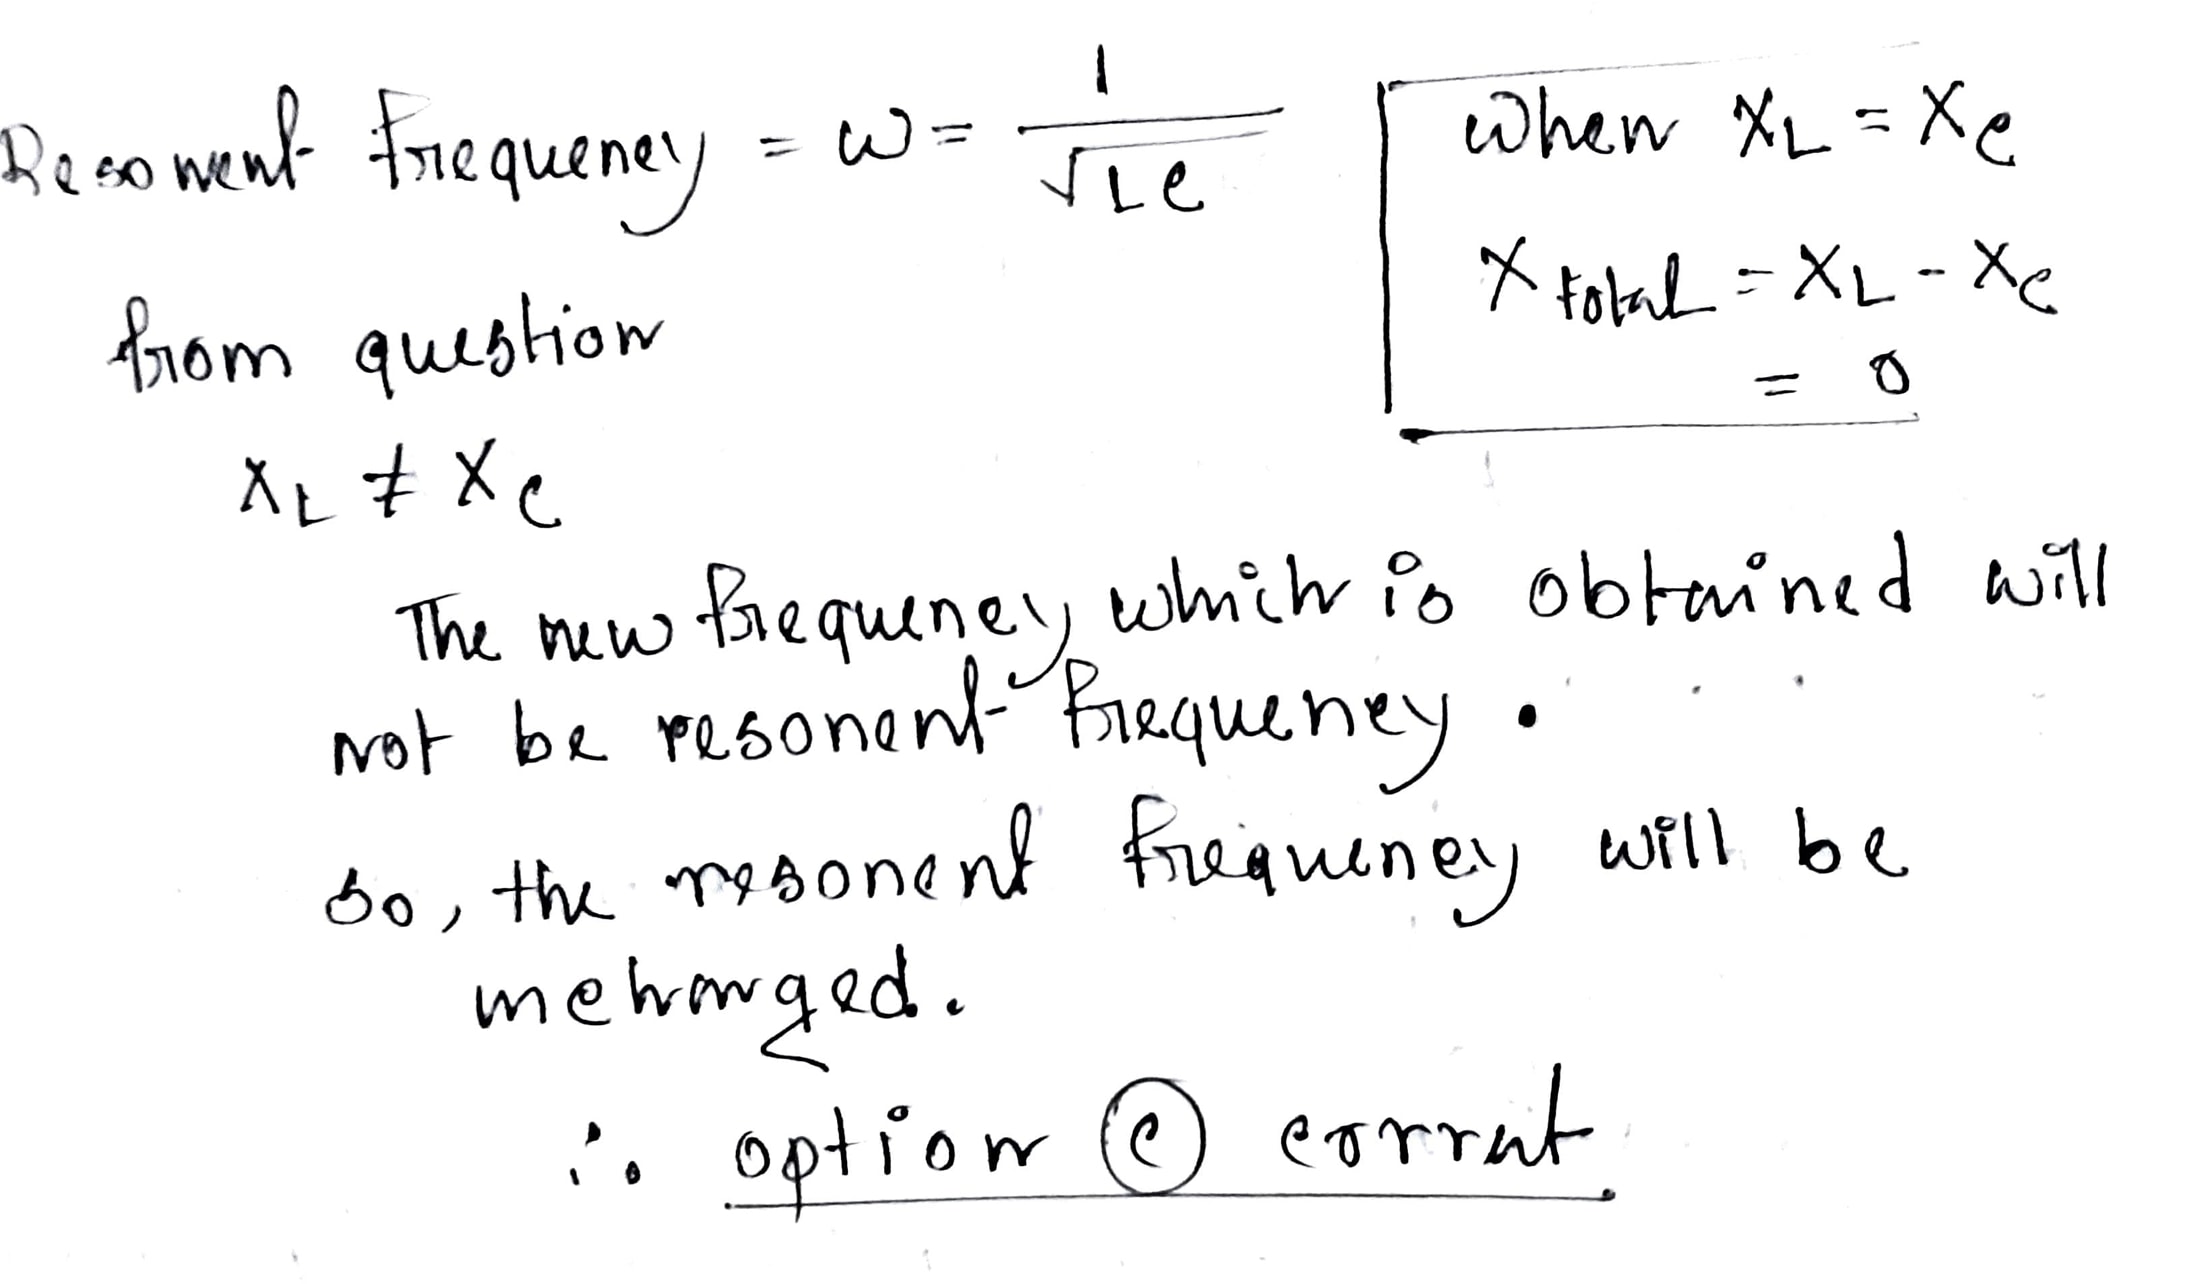 Resonent frequency = ω = 1/√LC
When XL = XC
X total = XL - XC
= 0
from question
XL ≠ XC
The new frequency which is obtained will
not be resonent frequency.
So, the resonent frequency will be
unchanged.
∴ option Ⓒ correct